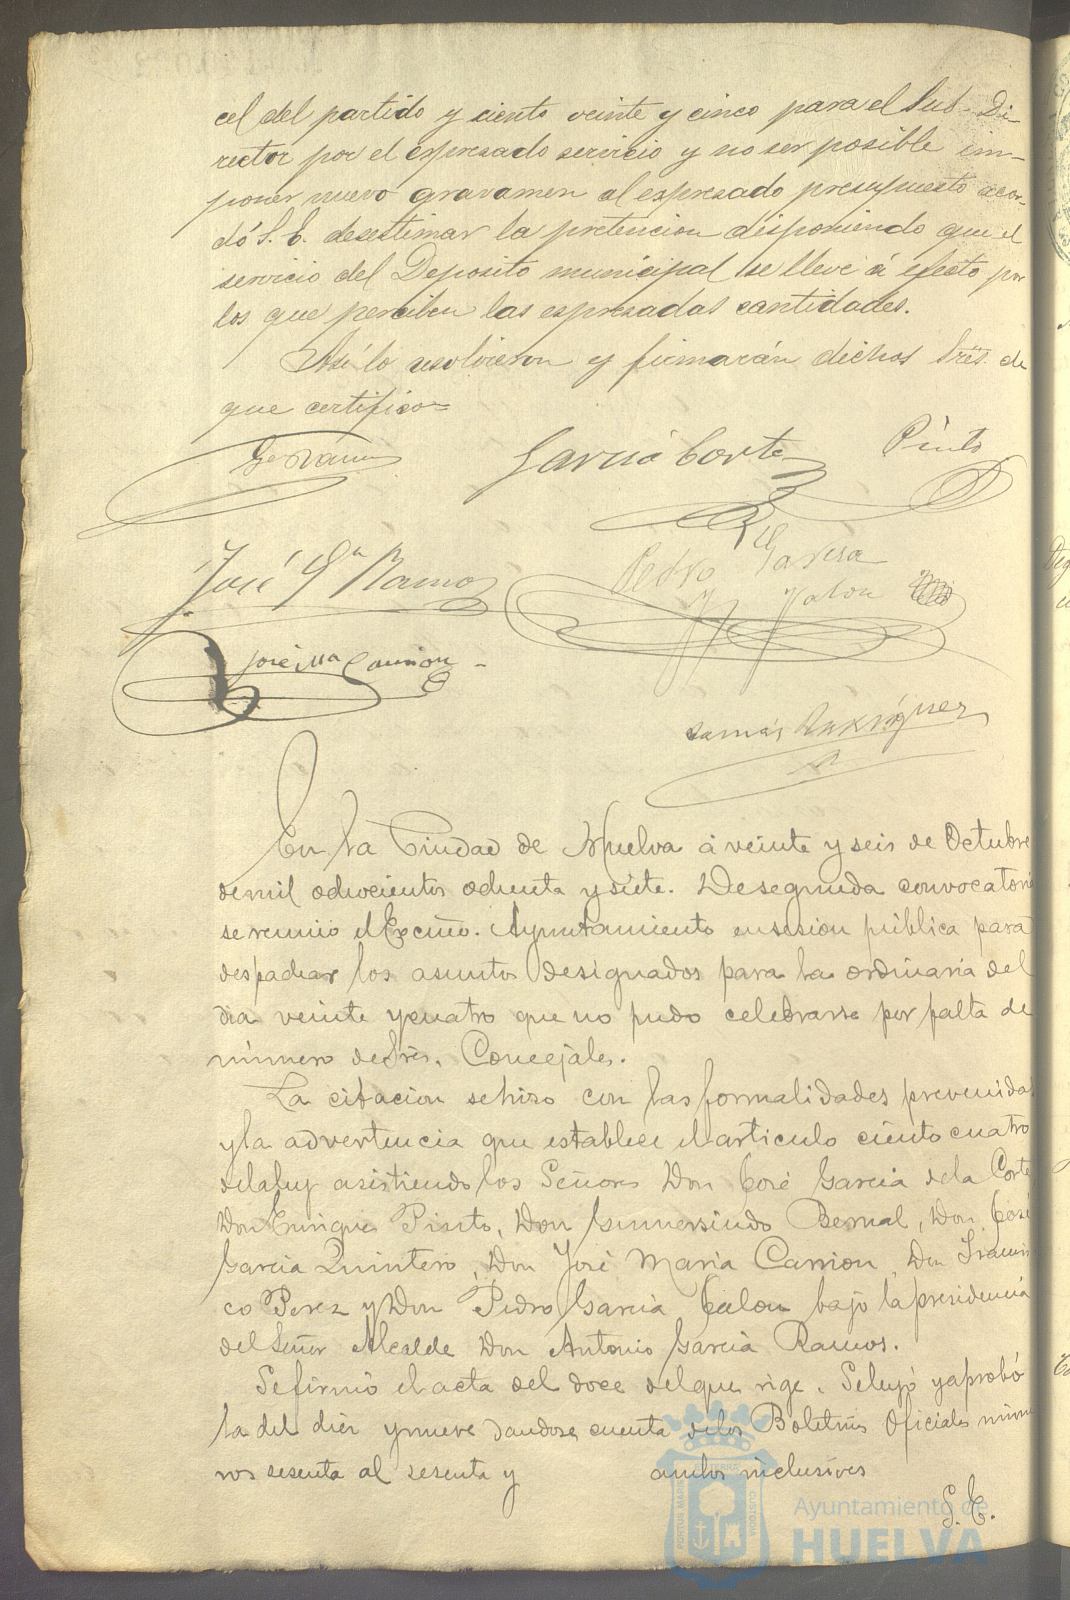 cel del partido y ciento veinte y cinco para el Sub-Di-
rector por el espresado servicio y no ser posible im-
poner nuevo gravamen al espresado presupuesto acor-
dó S. E. desestimar la pretencion disponiendo que el
servicio del Deposito municipal se lleve á efecto por
los que perciben las espresadas cantidades.
Así lo resolvieron y firmarán dichos Sres. de
que certifico=
García Corte
Pinto
José Gª Ramos
Pedro García
Jalon
José Mª Carrion
Tomás Rodríguez
En la Ciudad de Huelva á veinte y seis de Octubre
de mil ochocientos ochenta y siete. De segunda convocatoria
se reunio el Excmo. Ayuntamiento en sesion pública para
despachar los asuntos designados para la ordinaria del
dia veinte y cuatro que no pudo celebrarse por falta de
número de Sres. Concejales.
La citacion se hizo con las formalidades prevenidas
y la advertencia que establece el articulo ciento cuatro
de la ley asistiendo los Señores Don José Garcia de la Corte
Don Enrique Pinto, Don Gumersindo Bernal, Don José
Garcia Quintero, Don José Maria Carrion, Don Francis
co Perez y Don Pedro Garcia Jalon bajo la presidencia
del Señor Alcalde Don Antonio Garcia Ramos.
Se firmó el acta del doce del que rige. Se leyó y aprobó
la del diez y nueve dandose cuenta de los Boletines Oficiales núme
ros sesenta al sesenta y ambos inclusives
S. E.
PORTUS MARIS
ET TERRAE
CUSTODIA
Ayuntamiento de
HUELVA